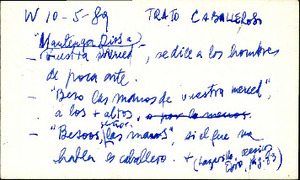 W 10-5-89 TRATO CABALLEROSO
"Mantenga Dios a
- vuestra merced", se dice a los hombres
de poca arte.
- "Beso las manos de vuestra merced",
a los + altos, o por lo menos
señor,
- "Besoos, las manos", si el que me
habla es caballero. + (Lazarillo,
pág. 93)